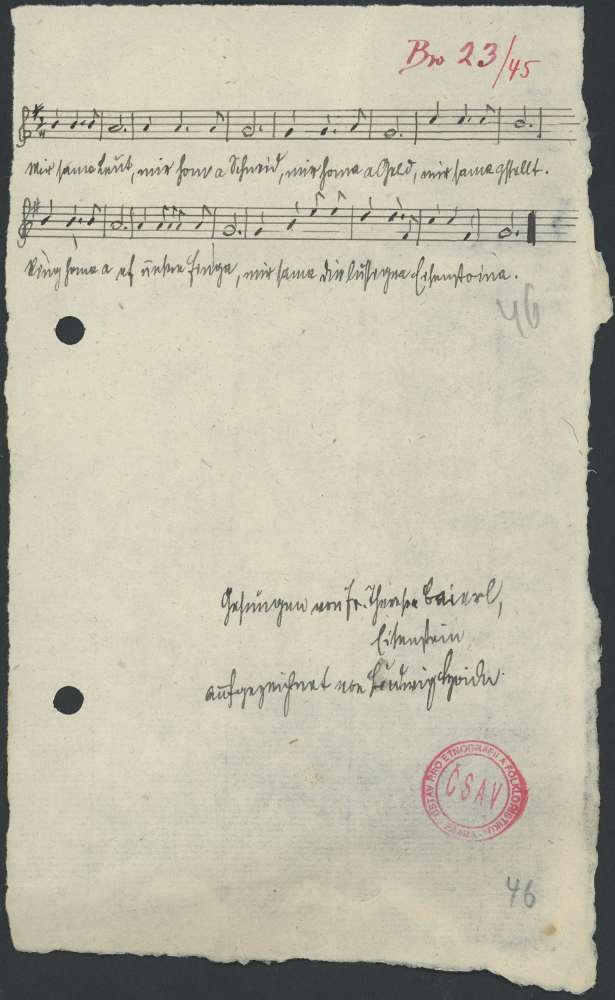 Br 23/45
Mir sama Leut, mir hom a Schneid, mir homa a Geld, mir sama gstellt.
Ring homa a af unsre Finga, mir sama die lustigen Eisenstoina.
46
Gesungen von Fr. Therese Baierl,
Eisenstein
aufgezeichnet von Ludwig
ÚSTAV PRO ETNOGRAFII A FOLKLORISTIKU
ČSAV
PRAHA
46